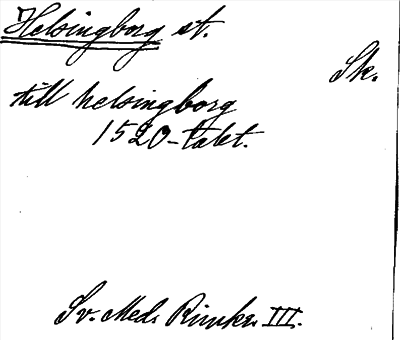 Helsingborg st.
Sk.
till helsingborg
1520-talet.
Sv. Med. Rimkr. III.